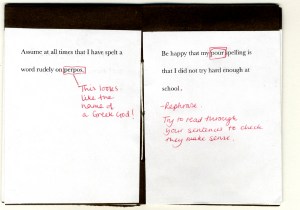 Assume at all times that I have spelt a
word rudely on perpos.
This looks
like the
name of
a Greek God!
Be happy that my pour spelling is
that I did not try hard enough at
school.
- Rephrase.
Try to read through
your sentences to check
they make sense.